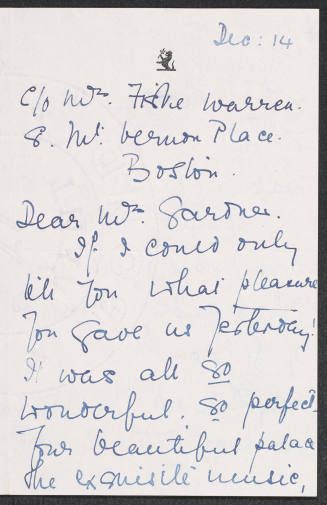 Dec: 14
c/o Mrs. Fiske Warren.
8. Mt. Vernon Place.
Boston.
Dear Mrs. Gardner.
If I could only
tell you what pleasure
you gave us yesterday!
It was all so
wonderful. so perfect.
Your beautiful palace
the exquisite music,